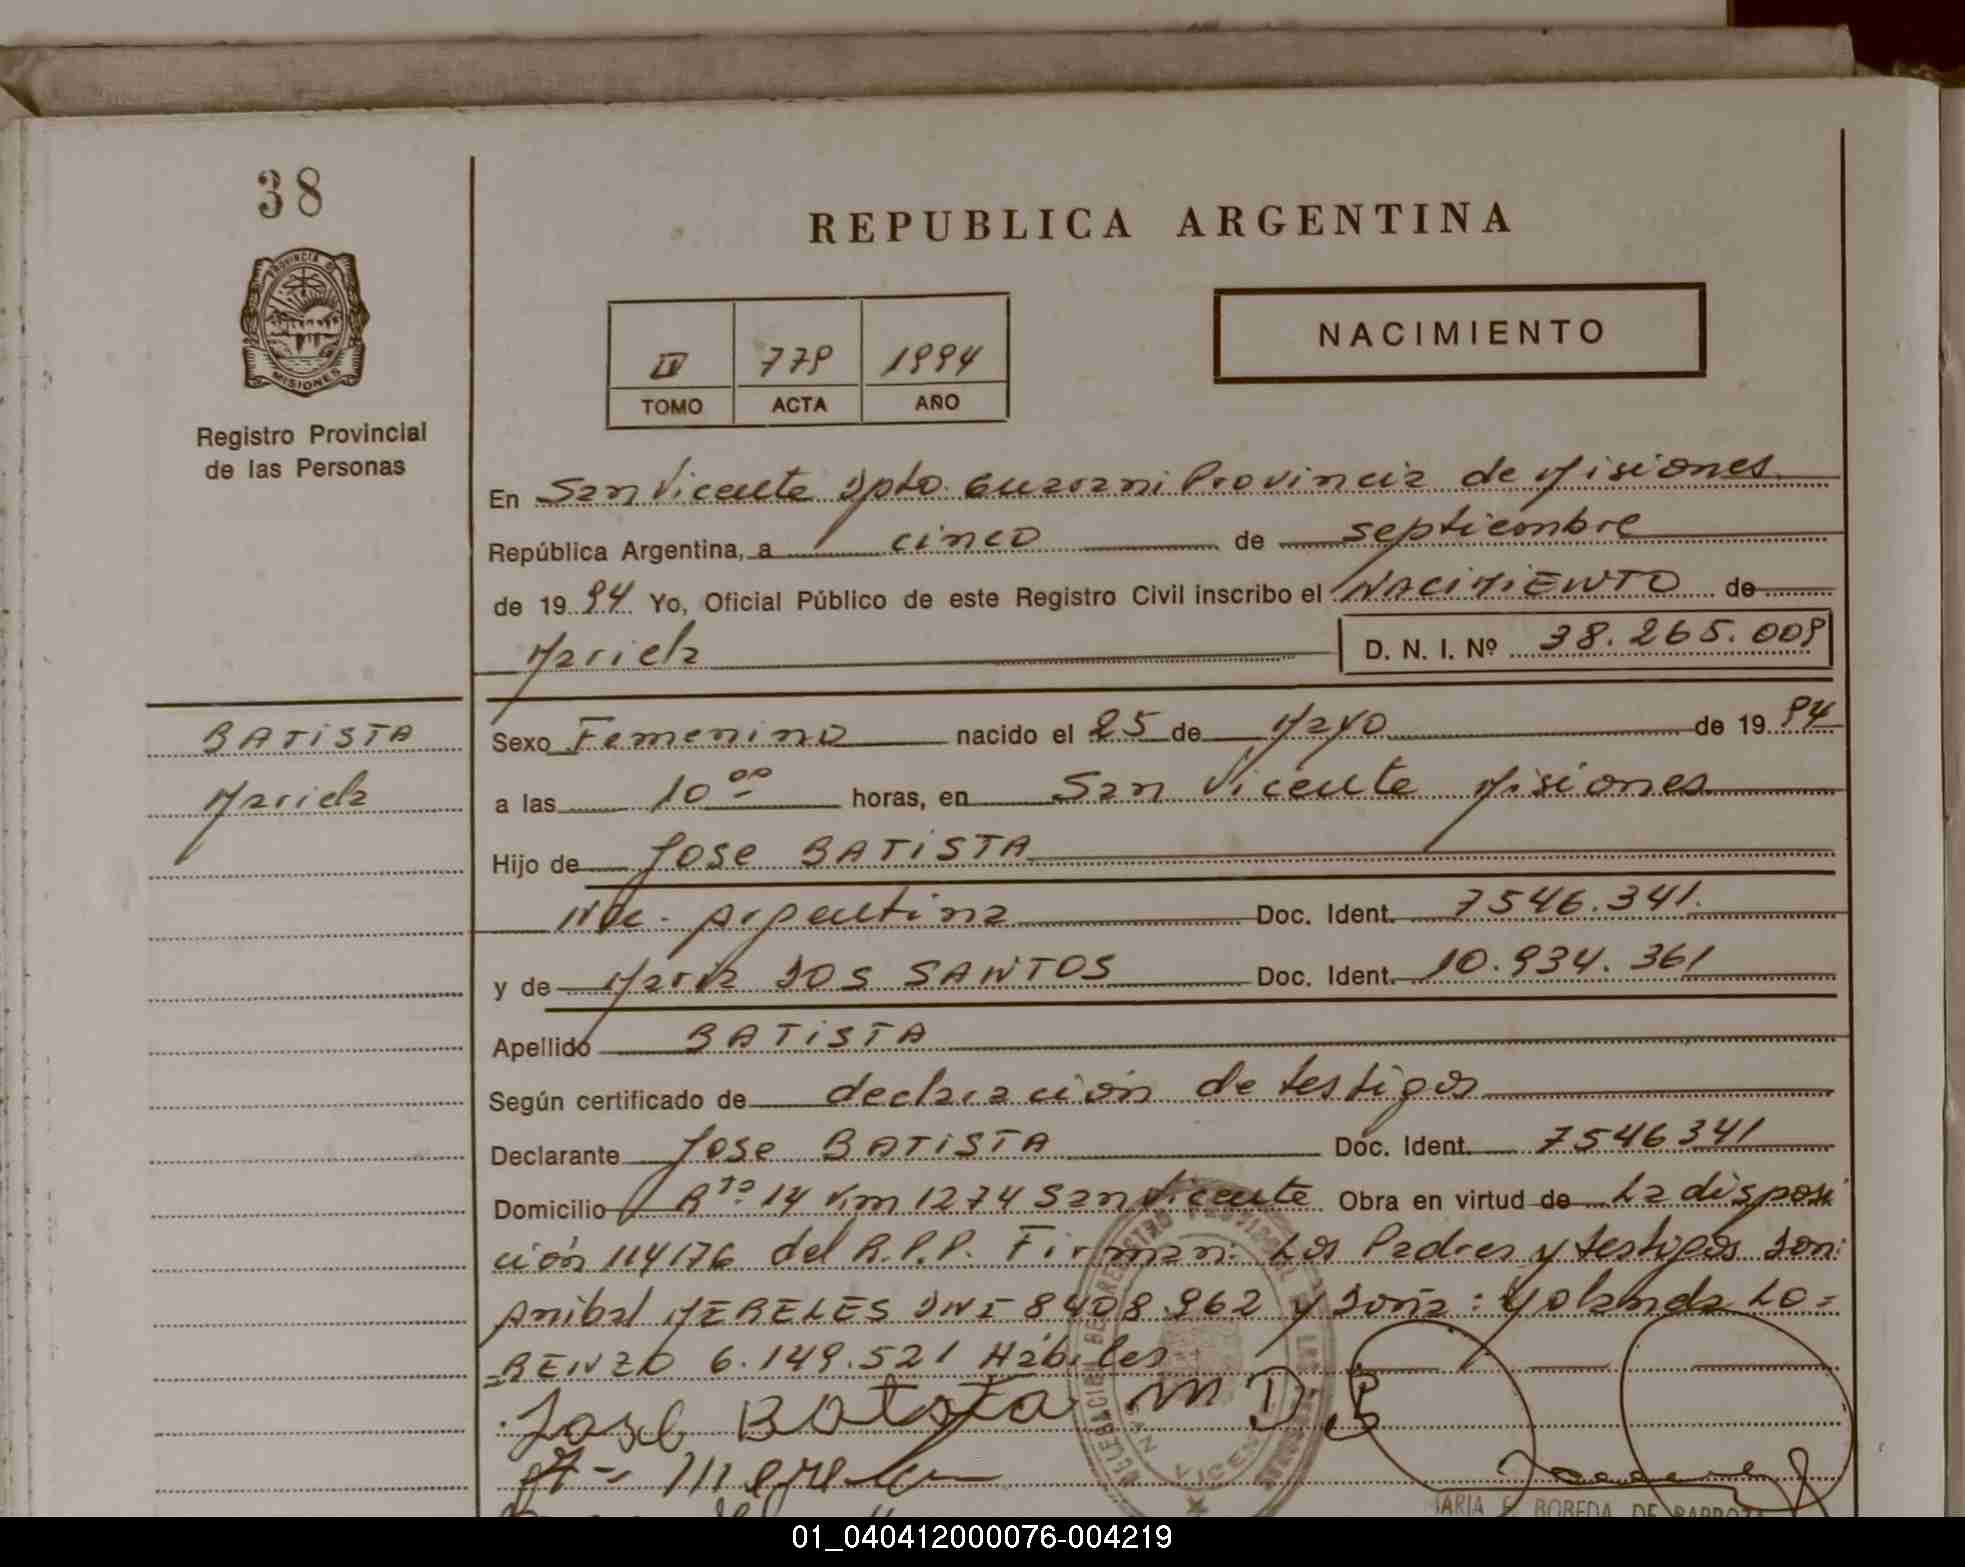 38
REPUBLICA ARGENTINA
PROVINCIA DE
MISIONES
Registro Provincial
de las Personas
IV 779 1994
TOMO ACTA AÑO
NACIMIENTO
En San Vicente Dpto. Guarani Provincia de Misiones
República Argentina, a cinco de septiembre
de 1994 Yo, Oficial Público de este Registro Civil inscribo el NACIMIENTO de
Mariela D. N. I. Nº 38.265.009
BATISTA
Mariela
Sexo Femenino nacido el 25 de Mayo de 1994
a las 10 00 horas, en San Vicente Misiones
Hijo de Jose BATISTA
Nac. Argentina Doc. Ident. 7546.341.
y de Maria DOS SANTOS Doc. Ident. 10.934.361
Apellido BATISTA
Según certificado de declaración de testigos
Declarante Jose BATISTA Doc. Ident. 7546341
Domicilio Rta 14 Km 1274 San Vicente Obra en virtud de La disposi
ción 114/76 del R.P.P. Firman: Los Padres y testigos Don:
Anibal MERELES DNI 8408.962 y Doña: Yolanda LO=
=RENZO 6.149.521 Hábiles
José Batista M D. B
MARIA E. BOBEDA DE
01_040412000076-004219